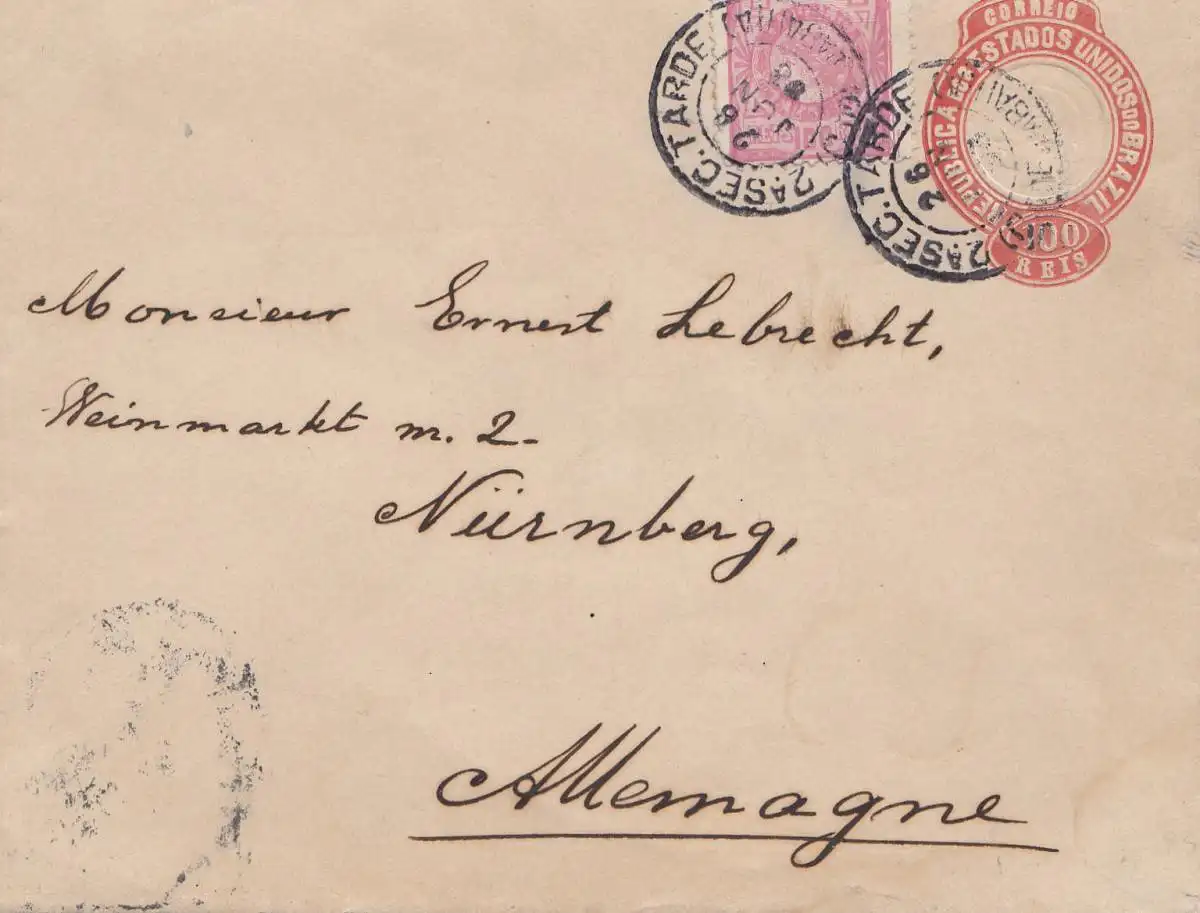 CORREIO
REPUBLICA DOS ESTADOS UNIDOS DO BRAZIL
100
REIS
REIS
2ASEC. TARDE
26
JUN
2ASEC. TARDE
26
Monsieur Ernest Lebrecht,
Weinmarkt m. 2-
Nürnberg,
Allemagne